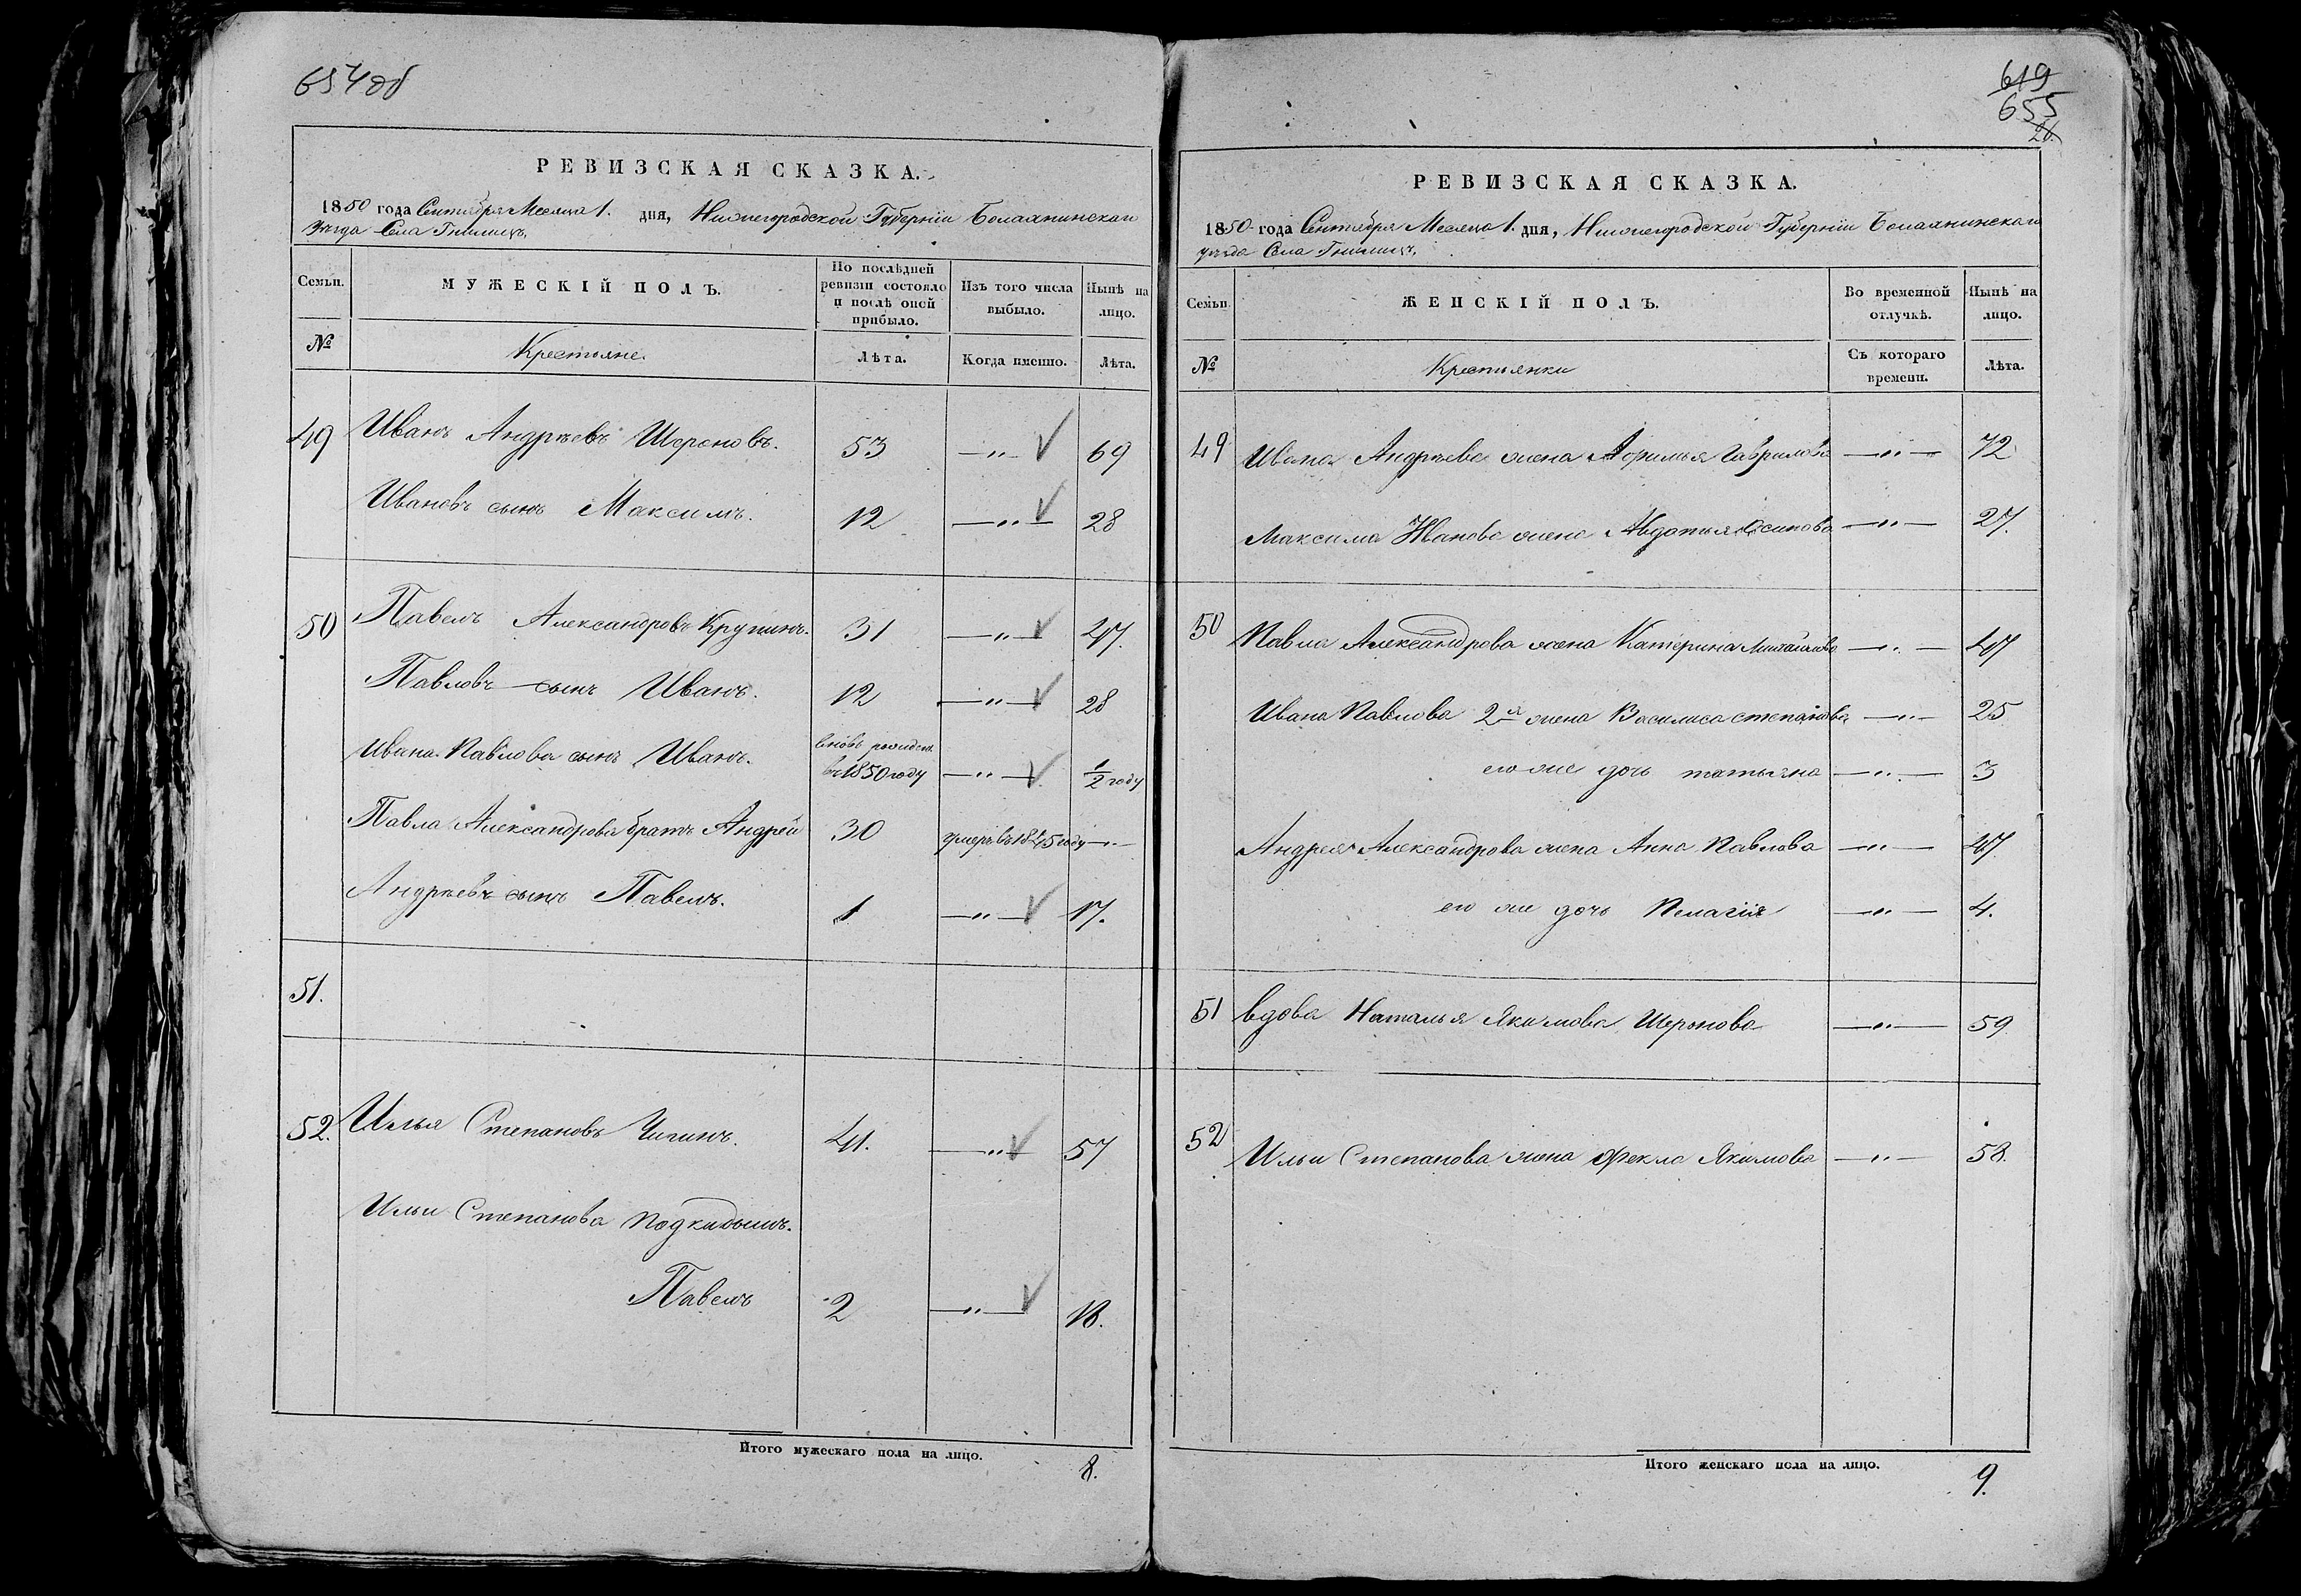 654об
РЕВИЗСКАЯ СКАЗКА.
1850 года Сентября Месяца 1. дня, Нижегородской Губерніи Балахнинскаго
Уѣзда Села Гнилицъ.
Семьи.
МУЖЕСКІЙ ПОЛЪ.
По послѣдней ревизіи состояло и послѣ оной прибыло.
Изъ того числа выбыло.
Нынѣ на лицо.
№
Крестьяне.
Лѣта.
Когда именно.
Лѣта.
49 Иванъ Андрѣевъ Шероновъ. 53 —"— 69
Ивановъ сынъ Максимъ. 12 —"— 28
50 Павелъ Александровъ Крупинъ. 31 —"— 47.
Павловъ сынъ Иванъ. 12 —"— 28
Ивана Павлова сынъ Иванъ. вновь рожденъ въ 1850 году —"— 1/2 году
Павла Александрова братъ Андрей 30 умеръ въ 1845 году —"—
Андрѣевъ сынъ Павелъ. 1 —"— 17.
51.
52. Илья Степановъ Чигинъ. 41. —"— 57
Ильи Степанова подкидышъ.
Павелъ 2 —"— 18.
Итого мужескаго пола на лицо. 8.
619
655
26.
РЕВИЗСКАЯ СКАЗКА.
1850 года Сентября Месяца 1. дня, Нижегородской Губерніи Балахнинскаго
уѣзда Села Гнилицъ.
Семьи
ЖЕНСКІЙ ПОЛЪ.
Во временной отлучкѣ.
Нынѣ на лицо.
№
Крестьянки
Съ котораго времени.
Лѣта.
49 Ивана Андрѣева жена Афимья Гаврилова —"— 72
Максима Иванова жена Авдотья Осипова —"— 27.
50 Павла Александрова жена Катерина Михайлова —"— 47
Ивана Павлова 2я жена Василиса степанова —"— 25
его же дочь татьяна —"— 3
Андрея Александрова жена Анна Павлова —"— 47
его же дочь Пелагія —"— 4.
51 вдова Наталья Якимова Шеронова —"— 59
52 Ильи Степанова жена Фекла Якимова —"— 58.
Итого женскаго пола на лицо. 9.